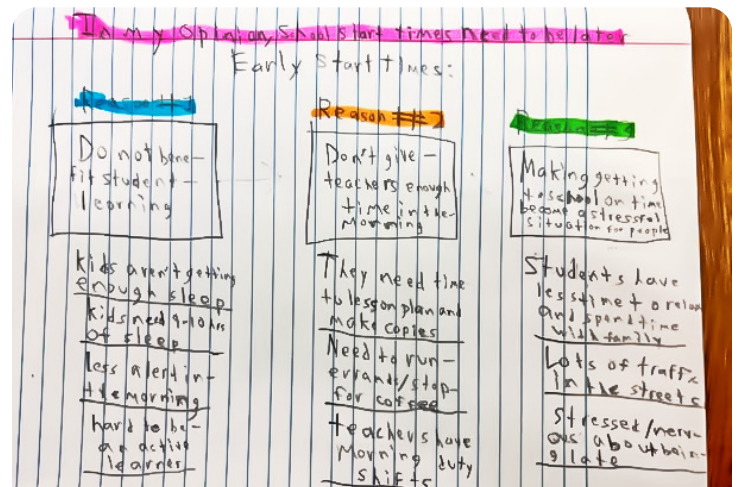 In my opinion, School start times need to be later
Early Start times:
Reason #1
Do not bene-
fit student-
learning
kids aren't getting
enough sleep
kids need 9-10 hrs
of sleep
less alert in-
the morning
hard to be-
an active
learner
Reason #2
Don't give-
teachers enough
time in the-
morning
They need time
to lesson plan and
make copies
Need to run-
errands/stop-
for coffee
teachers have
morning duty
shifts
Reason #3
Making getting
to school on time
become a stressful
situation for people
Students have
less time to relax
and spend time
with family
Lots of traffic
in the streets
Stressed/nerv-
ous about bein-
g late